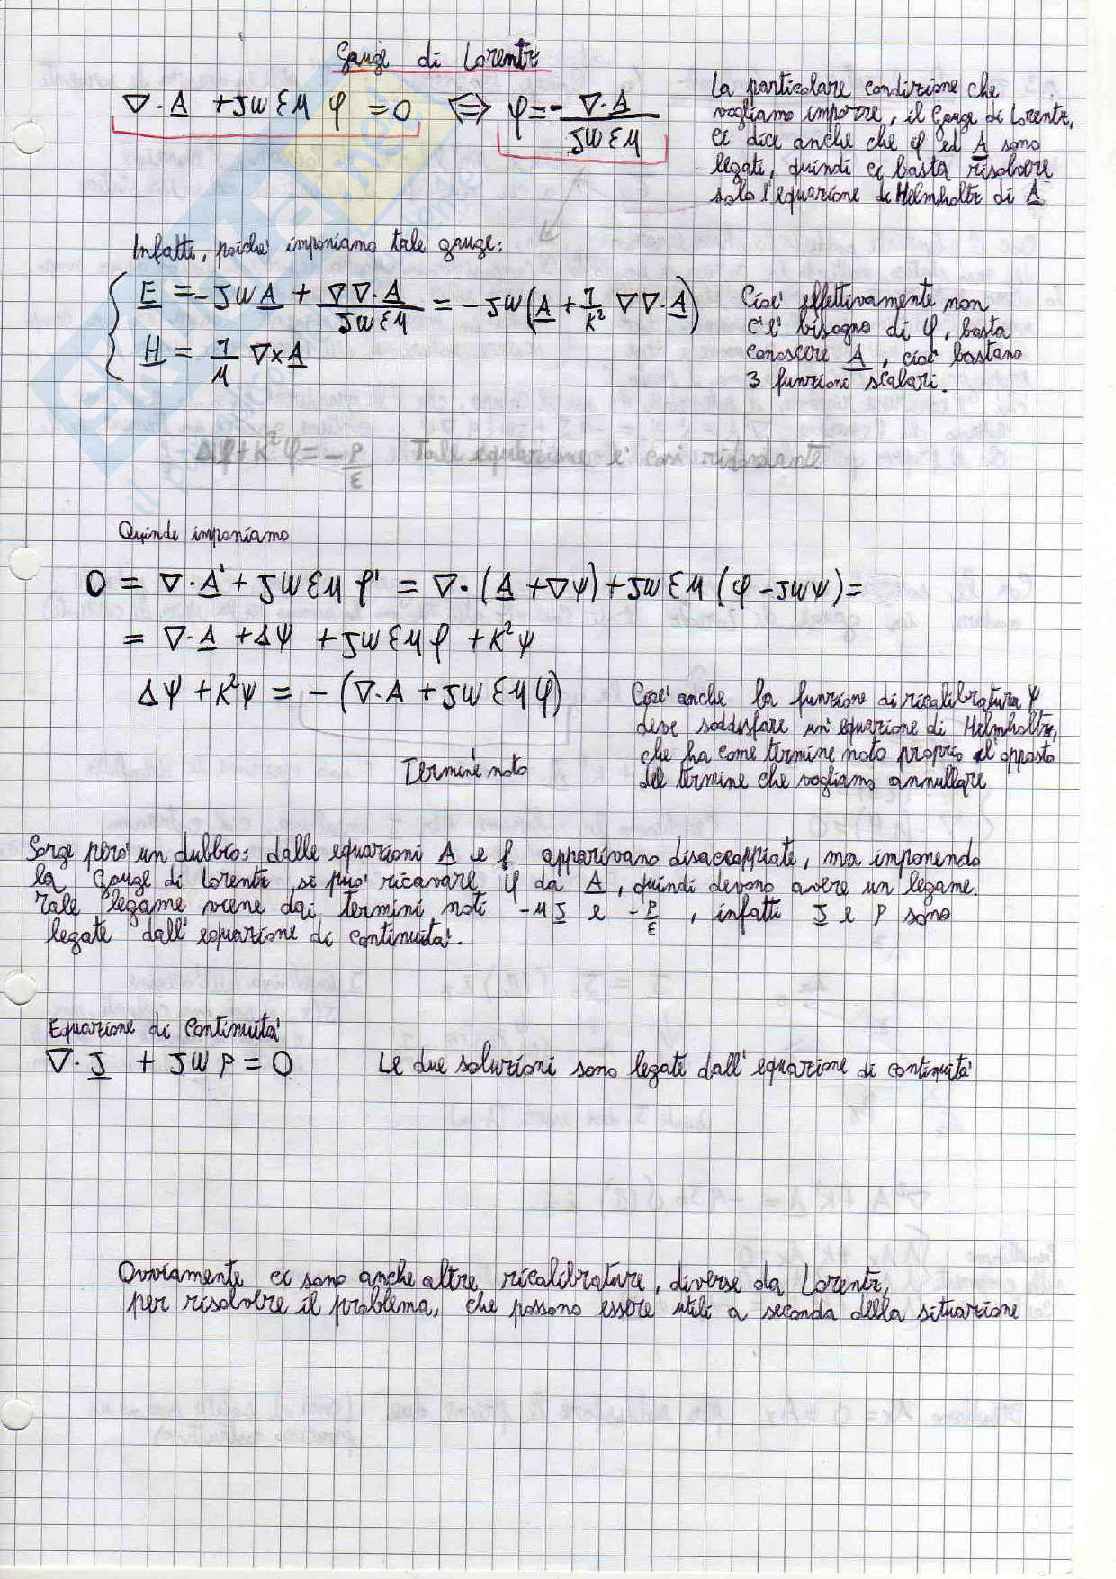 Gauge di Lorentz
∇·A + jωεμ φ = 0 ⟺ φ = - ∇·A / jωεμ
La particolare condizione che
vogliamo imporre, il Gauge di Lorentz,
ci dice anche che φ ed A sono
legati, quindi ci basta risolvere
solo l'equazione di Helmholtz di A
Infatti, poiché imponiamo tale gauge:
E = -jωA + ∇∇·A / jωεμ = -jω(A + 1/k² ∇∇·A)
H = 1/μ ∇×A
Cioè effettivamente non
c'è bisogno di φ, basta
conoscere A, cioè bastano
3 funzioni scalari.
Δφ+k²φ = -ρ/ε Tale equazione è
Quindi imponiamo
0 = ∇·A' + jωεμ φ' = ∇·(A + ∇ψ) + jωεμ (φ - jωψ) =
= ∇·A + Δψ + jωεμ φ + k²ψ
Δψ + k²ψ = - (∇·A + jωεμφ)
Termine noto
Cioè anche la funzione di ricalibratura ψ,
deve soddisfare un'equazione di Helmholtz,
che ha come termine noto proprio l'opposto
del termine che vogliamo annullare
Sorge però un dubbio: dalle equazioni A e φ apparivano disaccoppiate, ma imponendo
la Gauge di Lorentz si può ricavare φ da A, quindi devono avere un legame.
Tale legame viene dai termini noti -μJ e -ρ/ε, infatti J e ρ sono
legate dall'equazione di continuità.
Equazione di Continuità
∇·J + jωρ = 0 Le due soluzioni sono legate dall'equazione di continuità
Ovviamente ci sono anche altre ricalibrature, diverse da Lorentz,
per risolvere il problema, che possono essere utili a seconda della situazione